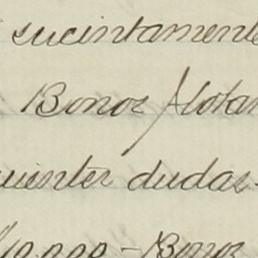 sucintamente
Bonos flotan
uientes dudas-
10.000 - Bonos